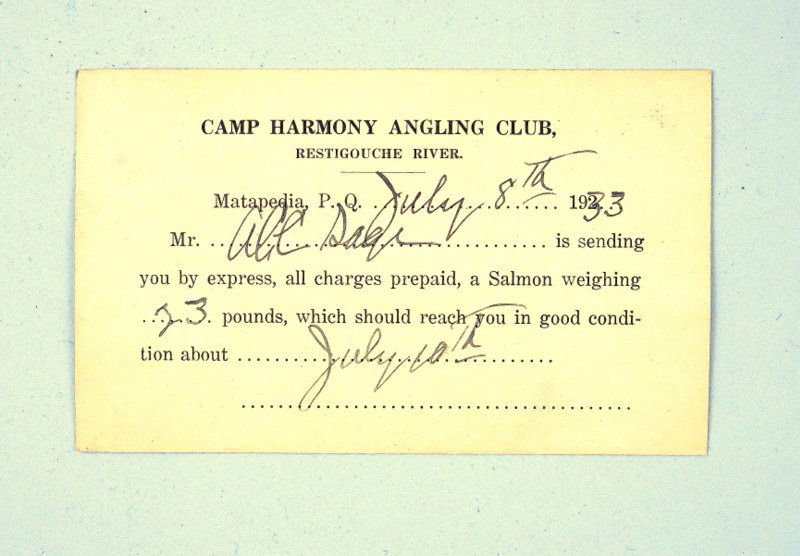 CAMP HARMONY ANGLING CLUB,
RESTIGOUCHE RIVER.
Matapedia, P. Q. July 8th 1933
Mr. .................... is sending
you by express, all charges prepaid, a Salmon weighing
23 pounds, which should reach you in good condi-
tion about July 10th